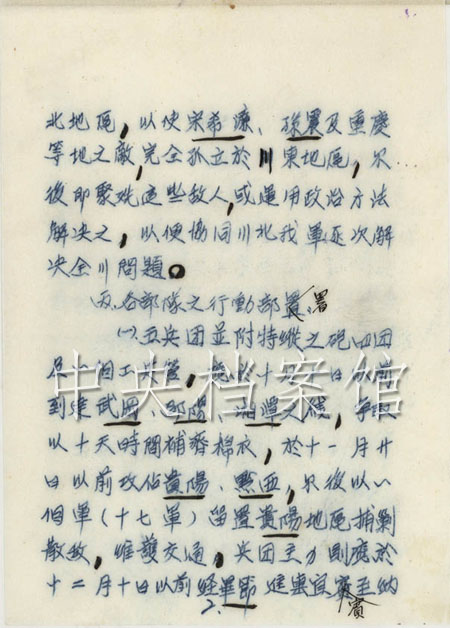 北地區，以使宋希濂、孫震及重慶
等地之敵完全孤立於川東地區，尔
後即聚殲這些敵人，或運用政治方法
解决之，以便協同川北我軍逐次解
决全川問題。
四、各部隊之行動部置署
㈠、五兵团並附特縱之砲四团
工兵營，十月日以前
到達武岡、邵陽、湘潭之線，争取
以十天時間補齊棉衣，於十一月廿
日以前攻佔貴陽、黔西，尔後以一
個軍（十七軍）留置貴陽地區捕剿
散敵，維護交通，兵团主力則應於
十二月十日以前經畢節進宜賓至納
2.
賓
中央档案馆